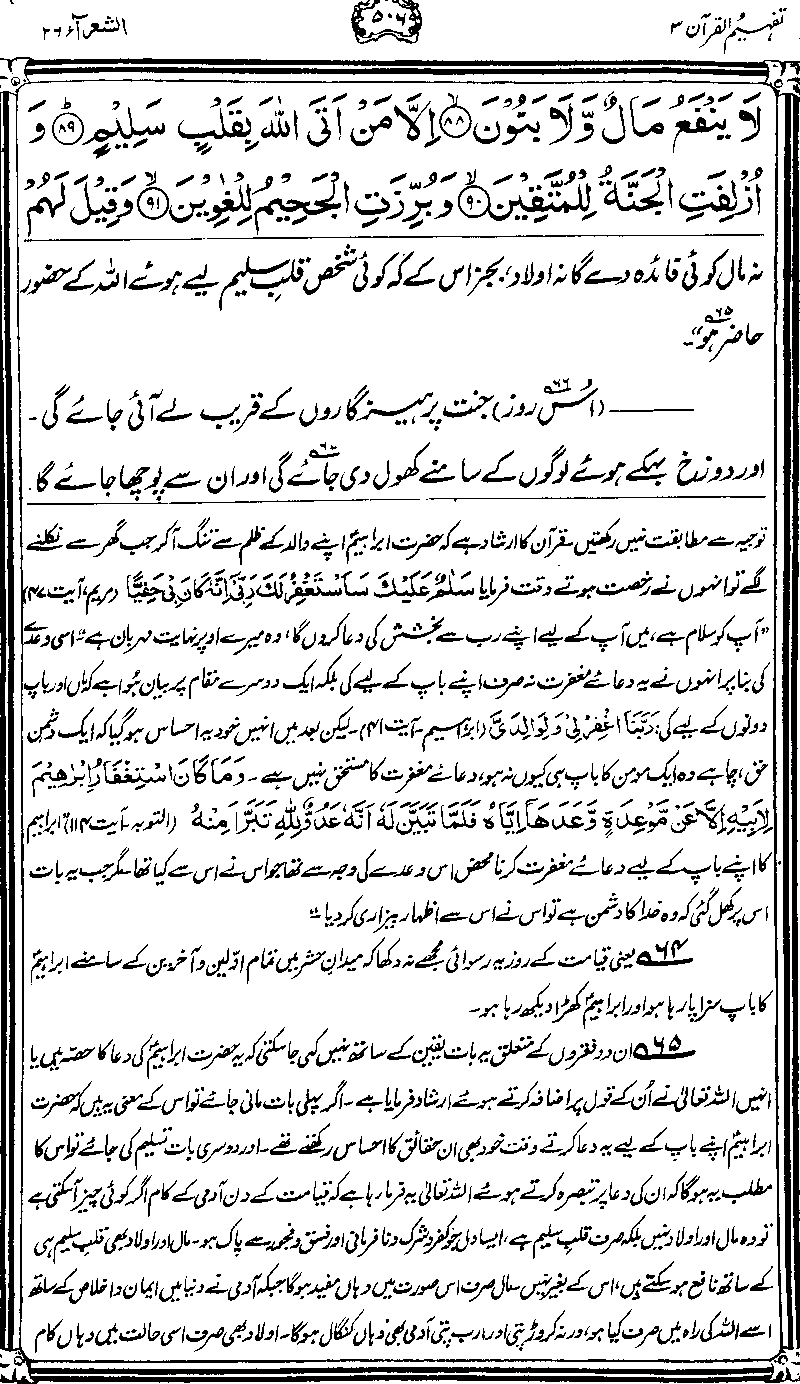 تفہیم القرآن ۳
۵۰۶
الشعرآء ۲۶
لَا يَنْفَعُ مَالٌ وَّلَا بَنُوْنَ ﴿۸۸﴾ اِلَّا مَنْ اَتَى اللّٰهَ بِقَلْبٍ سَلِيْمٍ ﴿۸۹﴾ وَ
اُزْلِفَتِ الْجَنَّةُ لِلْمُتَّقِيْنَ ﴿۹۰﴾ وَبُرِّزَتِ الْجَحِيْمُ لِلْغٰوِيْنَ ﴿۹۱﴾ وَقِيْلَ لَهُمْ
نہ مال کوئی فائدہ دے گا نہ اولاد، بجز اس کے کہ کوئی شخص قلبِ سلیم لیے ہوئے اللہ کے حضور
حاضر ہو۔“ ۶۵
(اُس روز) ۶۶ جنت پرہیزگاروں کے قریب لے آئی جائے گی۔
اور دوزخ بہکے ہوئے لوگوں کے سامنے کھول دی جائے گی ۶۷ اور ان سے پوچھا جائے گا
توجیہ سے مطابقت نہیں رکھتیں۔ قرآن کا ارشاد ہے کہ حضرت ابراہیمؑ اپنے والد کے ظلم سے تنگ آ کر جب گھر سے نکلنے
لگے تو انہوں نے رخصت ہوتے وقت فرمایا سَلٰمٌ عَلَيْكَ سَاَسْتَغْفِرُ لَكَ رَبِّيْ اِنَّهٗ كَانَ بِيْ حَفِيًّا (مریم، آیت ۴۷)
”آپ کو سلام ہے، میں آپ کے لیے اپنے رب سے بخشش کی دعا کروں گا، وہ میرے اوپر نہایت مہربان ہے“ اسی وعدے
کی بنا پر انہوں نے یہ دعائے مغفرت نہ صرف اپنے باپ کے لیے کی بلکہ ایک دوسرے مقام پر بیان ہوا ہے کہ ماں اور باپ
دونوں کے لیے کی: رَبَّنَا اغْفِرْ لِيْ وَلِوَالِدَيَّ (ابراہیم۔ آیت ۴۱)۔ لیکن بعد میں انہیں خود یہ احساس ہو گیا کہ ایک دشمنِ
حق، چاہے وہ ایک مومن کا باپ ہی کیوں نہ ہو، دعائے مغفرت کا مستحق نہیں ہے۔ وَمَا كَانَ اسْتِغْفَارُ اِبْرٰهِيْمَ
لِاَبِيْهِ اِلَّا عَنْ مَّوْعِدَةٍ وَّعَدَهَآ اِيَّاهُ فَلَمَّا تَبَيَّنَ لَهٗ اَنَّهٗ عَدُوٌّ لِّلّٰهِ تَبَرَّاَ مِنْهُ (التوبہ۔ آیت ۱۱۴) ”ابراہیم
کا اپنے باپ کے لیے دعائے مغفرت کرنا محض اس وعدے کی وجہ سے تھا جو اس نے اس سے کیا تھا۔ مگر جب یہ بات
اس پر کھل گئی کہ وہ خدا کا دشمن ہے تو اس نے اس سے اظہارِ بیزاری کر دیا“
۶۴ یعنی قیامت کے روز یہ رسوائی مجھے نہ دکھا کہ میدانِ حشر میں تمام اوّلین و آخرین کے سامنے ابراہیمؑ
کا باپ سزا پا رہا ہو اور ابراہیمؑ کھڑا دیکھ رہا ہو۔
۶۵ ان دو فقروں کے متعلق یہ بات یقین کے ساتھ نہیں کہی جا سکتی کہ یہ حضرت ابراہیمؑ کی دعا کا حصہ ہیں یا
انہیں اللہ تعالیٰ نے اُن کے قول پر اضافہ کرتے ہوئے ارشاد فرمایا ہے۔ اگر پہلی بات مانی جائے تو اس کے معنی یہ ہیں کہ حضرت
ابراہیمؑ اپنے باپ کے لیے یہ دعا کرتے وقت خود بھی ان حقائق کا احساس رکھتے تھے۔ اور دوسری بات تسلیم کی جائے تو اس کا
مطلب یہ ہو گا کہ ان کی دعا پر تبصرہ کرتے ہوئے اللہ تعالیٰ یہ فرما رہا ہے کہ قیامت کے دن آدمی کے کام اگر کوئی چیز آ سکتی ہے
تو وہ مال اور اولاد نہیں بلکہ صرف قلبِ سلیم ہے، ایسا دل جو کفر و شرک و نافرمانی اور فسق و فجور سے پاک ہو۔ مال اور اولاد بھی قلبِ سلیم ہی
کے ساتھ نافع ہو سکتے ہیں، اس کے بغیر نہیں۔ مال صرف اس صورت میں وہاں مفید ہو گا جبکہ آدمی نے دنیا میں ایمان و اخلاص کے ساتھ
اسے اللہ کی راہ میں صرف کیا ہو، ورنہ کروڑ پتی اور ارب پتی آدمی بھی وہاں کنگال ہو گا۔ اولاد بھی صرف اسی حالت میں وہاں کام